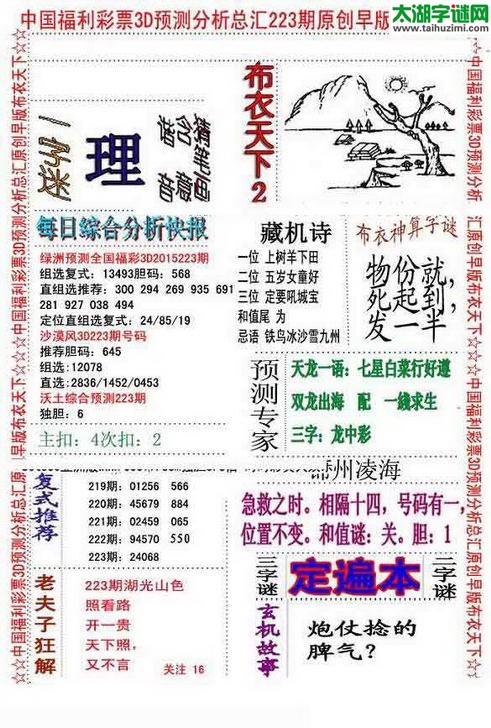 太湖字谜网
www.taihuzimi.com
中国福利彩票3D预测分析总汇223期原创早版
一字迷
理
猪笔画
含意
谐音
布衣天下2
每日综合分析快报
绿洲预测全国福彩3D2015223期
组选复式：13493胆码：568
直组选推荐：300 294 269 935 691
281 927 038 494
定位直组选复式：24/85/19
沙漠风3D223期号码
推荐胆码：645
组选:12078
直选:2836/1452/0453
沃土综合预测223期
独胆：6
主扣：4次扣：2
藏机诗
一位 上树羊下田
二位 五岁女童好
三位 定要吼城宝
和值尾 为
忌语 铁鸟冰沙雪九州
布衣神算子谜
物份就，
死起到
发一半
预测专家
天龙一语：七星白菜行好道
双龙出海 配 一线求生
三字：龙中彩
锦州凌海
急救之时。相隔十四，号码有一，
位置不变。和值谜：关。胆：1
复式推荐
219期：01256 566
220期：45679 884
221期：02459 065
222期：94570 550
223期：24068
三字谜
定遍本
三字谜
老夫子狂解
223期湖光山色
照看路
开一贵
天下照，
又不言
关注 16
玄机故事
炮仗捻的
脾气？
☆☆中国福利彩票3D预测分析总汇原创早版布衣天下☆☆